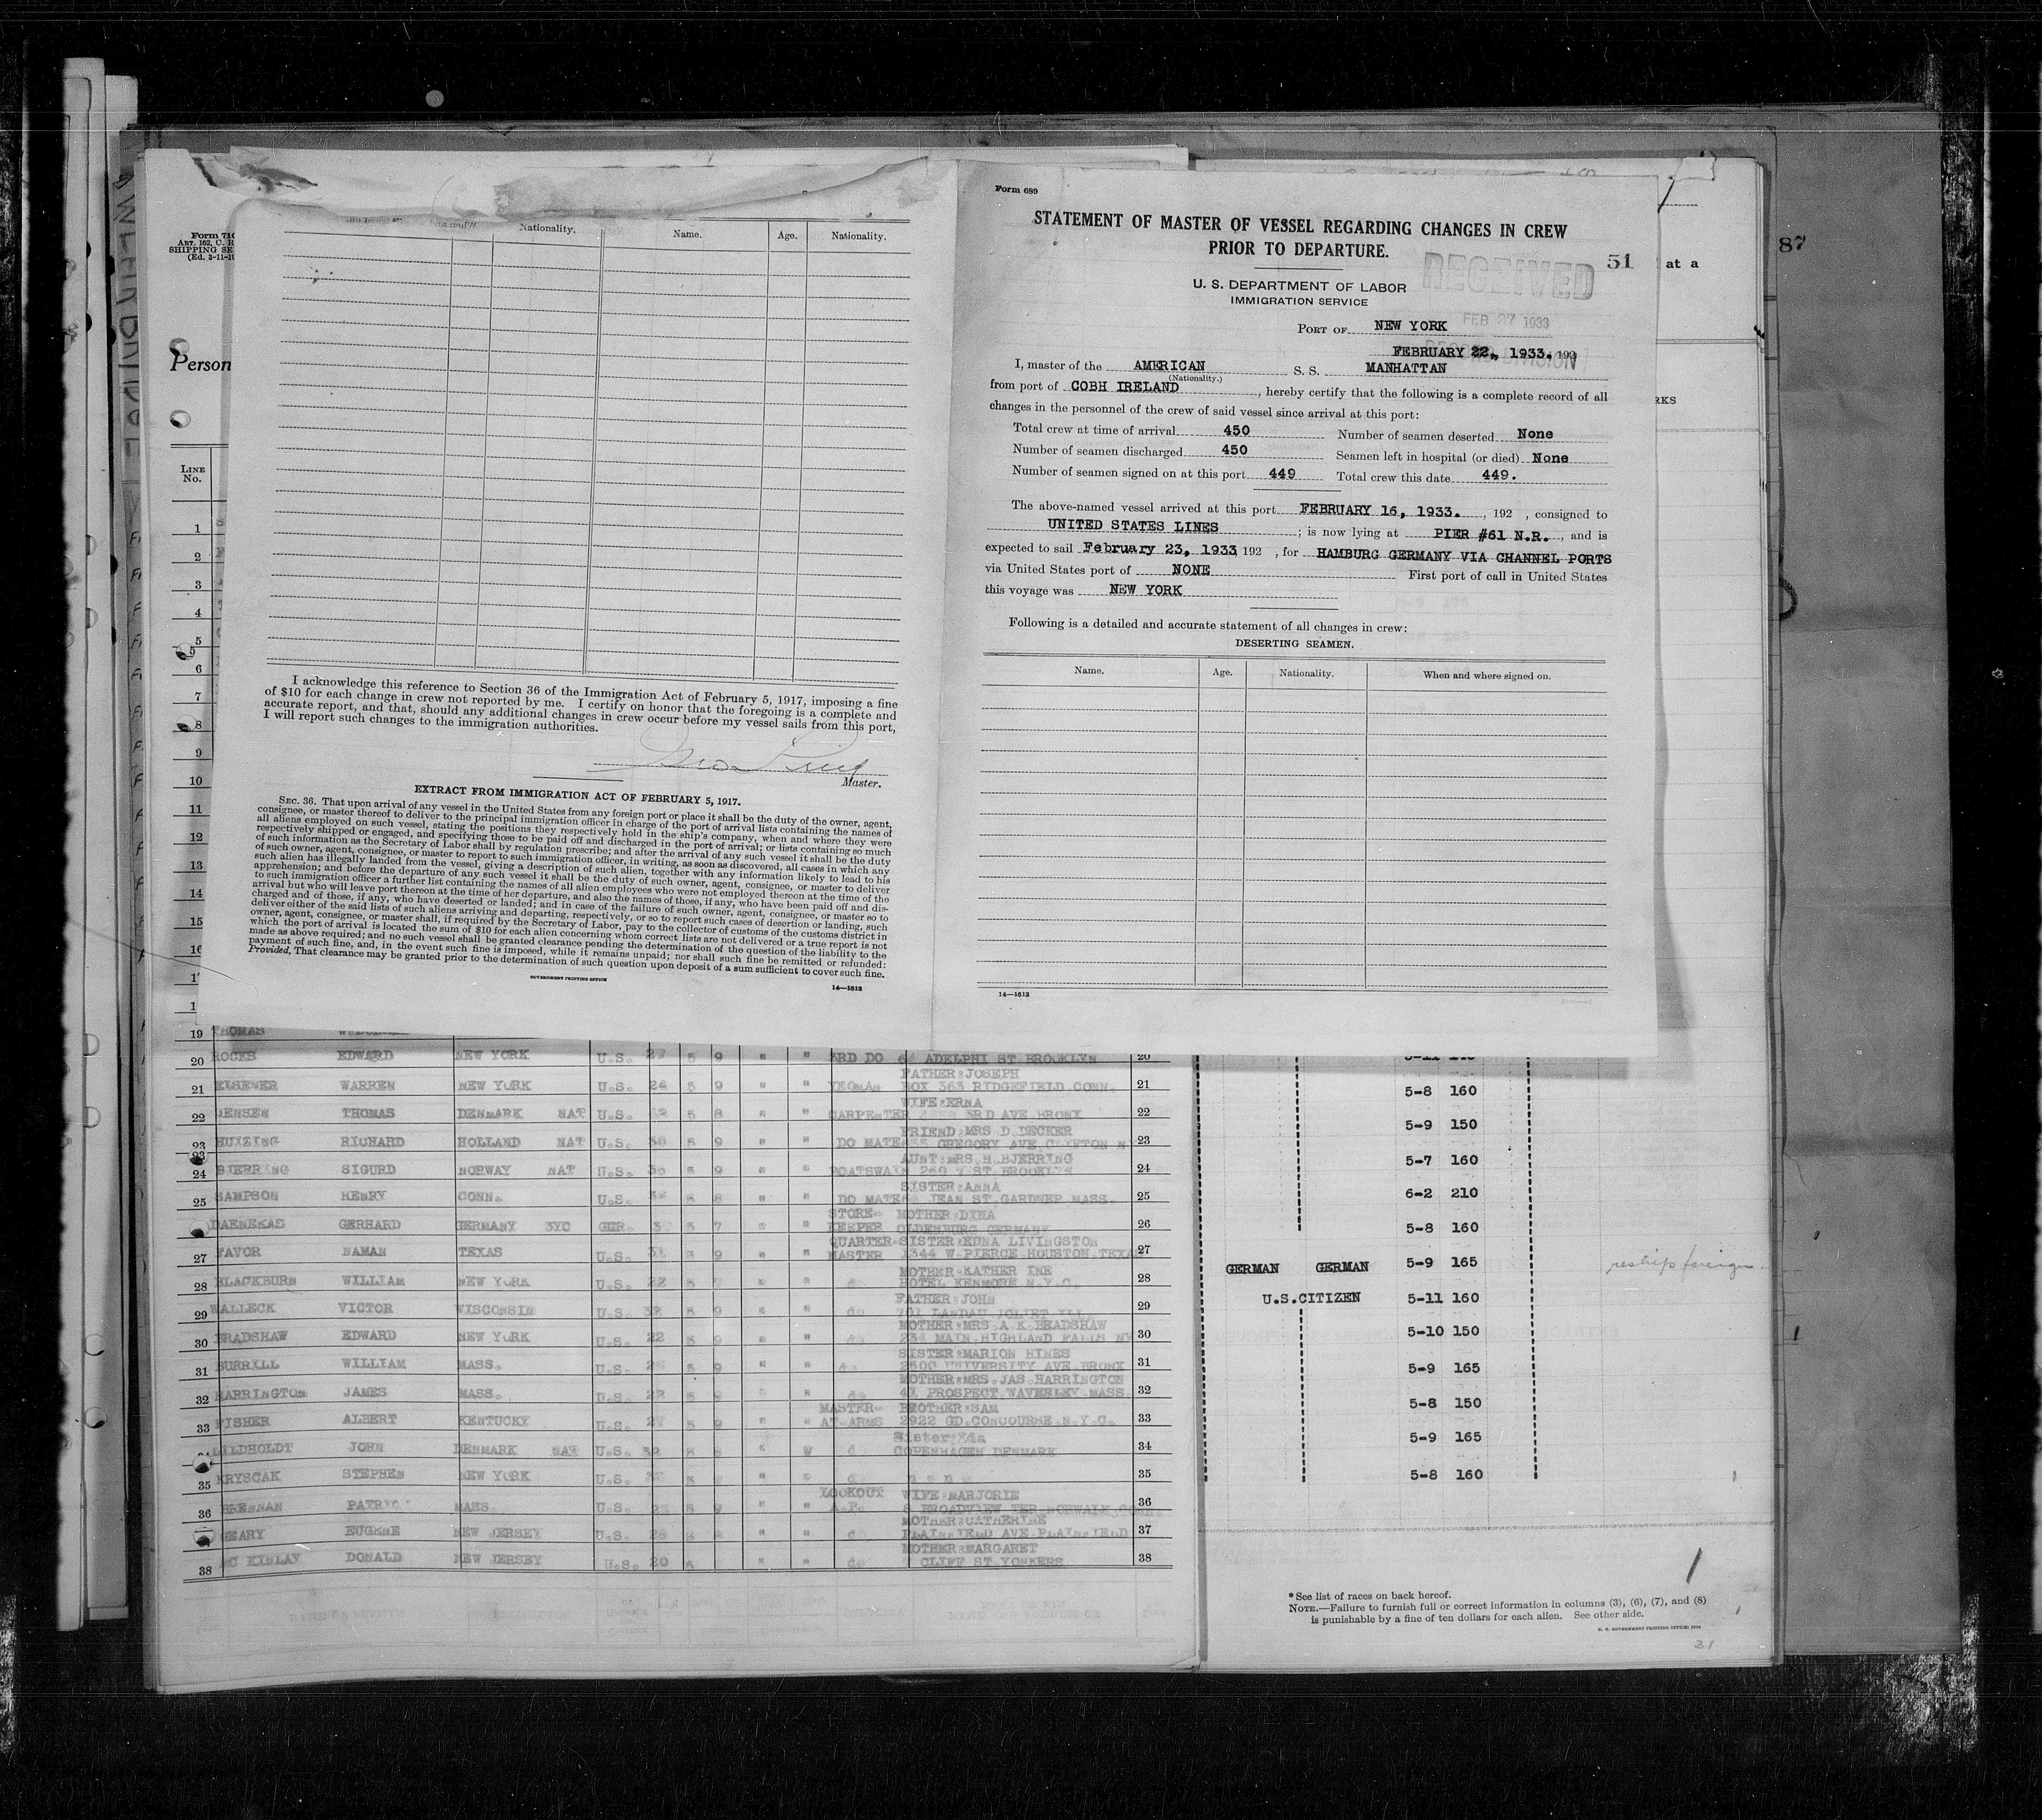 Form 689
STATEMENT OF MASTER OF VESSEL REGARDING CHANGES IN CREW
PRIOR TO DEPARTURE.
RECEIVED
FEB 27 1933
51
at a
87
U. S. DEPARTMENT OF LABOR
IMMIGRATION SERVICE
PORT OF NEW YORK
FEBRUARY 22, 1933. 192
I, master of the AMERICAN S. S. MANHATTAN
(Nationality.)
from port of COBH IRELAND, hereby certify that the following is a complete record of all
changes in the personnel of the crew of said vessel since arrival at this port:
Total crew at time of arrival 450 Number of seamen deserted None
Number of seamen discharged 450 Seamen left in hospital (or died) None
Number of seamen signed on at this port 449 Total crew this date 449.
The above-named vessel arrived at this port FEBRUARY 16, 1933. , 192 , consigned to
UNITED STATES LINES ; is now lying at PIER #61 N.R. , and is
expected to sail February 23, 1933 192 , for HAMBURG GERMANY VIA CHANNEL PORTS
via United States port of NONE First port of call in United States
this voyage was NEW YORK
Following is a detailed and accurate statement of all changes in crew:
DESERTING SEAMEN.
Name. Age. Nationality. When and where signed on.
14—1613
Nationality. Name. Age. Nationality.
I acknowledge this reference to Section 36 of the Immigration Act of February 5, 1917, imposing a fine
of $10 for each change in crew not reported by me. I certify on honor that the foregoing is a complete and
accurate report, and that, should any additional changes in crew occur before my vessel sails from this port,
I will report such changes to the immigration authorities.
Master.
EXTRACT FROM IMMIGRATION ACT OF FEBRUARY 5, 1917.
SEC. 36. That upon arrival of any vessel in the United States from any foreign port or place it shall be the duty of the owner, agent,
consignee, or master thereof to deliver to the principal immigration officer in charge of the port of arrival lists containing the names of
all aliens employed on such vessel, stating the positions they respectively hold in the ship's company, when and where they were
respectively shipped or engaged, and specifying those to be paid off and discharged in the port of arrival; or lists containing so much
of such information as the Secretary of Labor shall by regulation prescribe; and after the arrival of any such vessel it shall be the duty
of such owner, agent, consignee, or master to report to such immigration officer, in writing, as soon as discovered, all cases in which any
such alien has illegally landed from the vessel, giving a description of such alien, together with any information likely to lead to his
apprehension; and before the departure of any such vessel it shall be the duty of such owner, agent, consignee, or master to deliver
to such immigration officer a further list containing the names of all alien employees who were not employed thereon at the time of the
arrival but who will leave port thereon at the time of her departure, and also the names of those, if any, who have been paid off and dis-
charged and of those, if any, who have deserted or landed; and in case of the failure of such owner, agent, consignee, or master so to
deliver either of the said lists of such aliens arriving and departing, respectively, or so to report such cases of desertion or landing, such
owner, agent, consignee, or master shall, if required by the Secretary of Labor, pay to the collector of customs of the customs district in
which the port of arrival is located the sum of $10 for each alien concerning whom correct lists are not delivered or a true report is not
made as above required; and no such vessel shall be granted clearance pending the determination of the question of the liability to the
payment of such fine, and, in the event such fine is imposed, while it remains unpaid; nor shall such fine be remitted or refunded:
Provided, That clearance may be granted prior to the determination of such question upon deposit of a sum sufficient to cover such fine.
GOVERNMENT PRINTING OFFICE
14—1613
Form 710
ART. 162, C. R
SHIPPING SE
(Ed. 3-11-19
Person
LINE
No.
1
2
3
4
5
6
7
8
9
10
11
12
13
14
15
16
19 THOMAS
20 ROCKS EDWARD NEW YORK U.S. 27 5 9 " " 3RD DO ADELPHI ST BROOKLYN 20
21 ELSENER WARREN NEW YORK U.S. 24 5 9 " " YEOMAN FATHER:JOSEPH BOX 363 RIDGEFIELD.CONN. 21
22 JENSEN THOMAS DENMARK NAT U.S. 5 8 " " CARPENTER WIFE:ERNA 3RD AVE BRONX 22
23 HUIZING RICHARD HOLLAND NAT U.S. 5 9 " " DO MATE FRIEND:MRS D DECKER GREGORY AVE CLIFTON 23
24 BJERRING SIGURD NORWAY NAT U.S. 5 9 " " BOATSWAIN AUNT:MRS H BJERRING ST BROOKLYN 24
25 SAMPSON HENRY CONN. U.S. 5 8 " " DO MATE SISTER:ANNA JEAN ST.GARDNER MASS. 25
DAENEKAS GERHARD GERMANY 3YC GER. 5 7 " " STORE-KEEPER MOTHER:DINA OLDENBURG GERMANY 26
27 FAVOR NAMAN TEXAS U.S. 31 5 9 " " QUARTER MASTER SISTER:EDNA LIVINGSTON 1344 W.PIERCE HOUSTON.TEXAS 27
28 BLACKBURN WILLIAM NEW YORK U.S. 22 5 " " do MOTHER:KATHERINE HOTEL KENMORE N.Y.C. 28
29 WALLECK VICTOR WISCONSIN U.S. 5 9 " " do FATHER:JOHN 701 LANDAU JOLIET ILL. 29
30 BRADSHAW EDWARD NEW YORK U.S. 22 5 9 " " do MOTHER:MRS.A K BRADSHAW 234 MAIN.HIGHLAND FALLS NY 30
31 BURRILL WILLIAM MASS. U.S. 5 9 " " do SISTER:MARION HINES 2500 UNIVERSITY AVE.BRONX 31
32 HARRINGTON JAMES MASS. U.S. 22 5 9 " " do MOTHER:MRS.JAS.HARRINGTON 41 PROSPECT.WAVERLEY MASS. 32
33 FISHER ALBERT KENTUCKY U.S. 27 5 9 " " MASTER-AT-ARMS BROTHER:SAM 2922 GD.CONCOURSE.N.Y.C. 33
LILDHOLDT JOHN DENMARK NAT U.S. 32 5 " " Sister:Eda COPENHAGEN DENMARK 34
35 KRYSCAK STEPHEN NEW YORK U.S. 5 " " none 35
36 BRENNAN PATRIC MASS. U.S. 5 9 " " LOOKOUT WIFE:MARJORIE BROADVIEW TER NORWALK 36
GEARY EUGENE NEW JERSEY U.S. 5 " " do MOTHER:CATHERINE PLAINFIELD AVE PLAINFIELD 37
38 MC KINLAY DONALD NEW JERSEY U.S. 20 5 " " do MOTHER:MARGARET CLIFF ST.YONKERS 38
RKS
5-8 160
5-9 150
5-7 160
6-2 210
5-8 160
GERMAN GERMAN 5-9 165 reship foreign
U.S.CITIZEN 5-11 160
5-10 150
5-9 165
5-8 150
5-9 165
5-8 160
*See list of races on back hereof.
NOTE.—Failure to furnish full or correct information in columns (3), (6), (7), and (8)
is punishable by a fine of ten dollars for each alien. See other side.
31